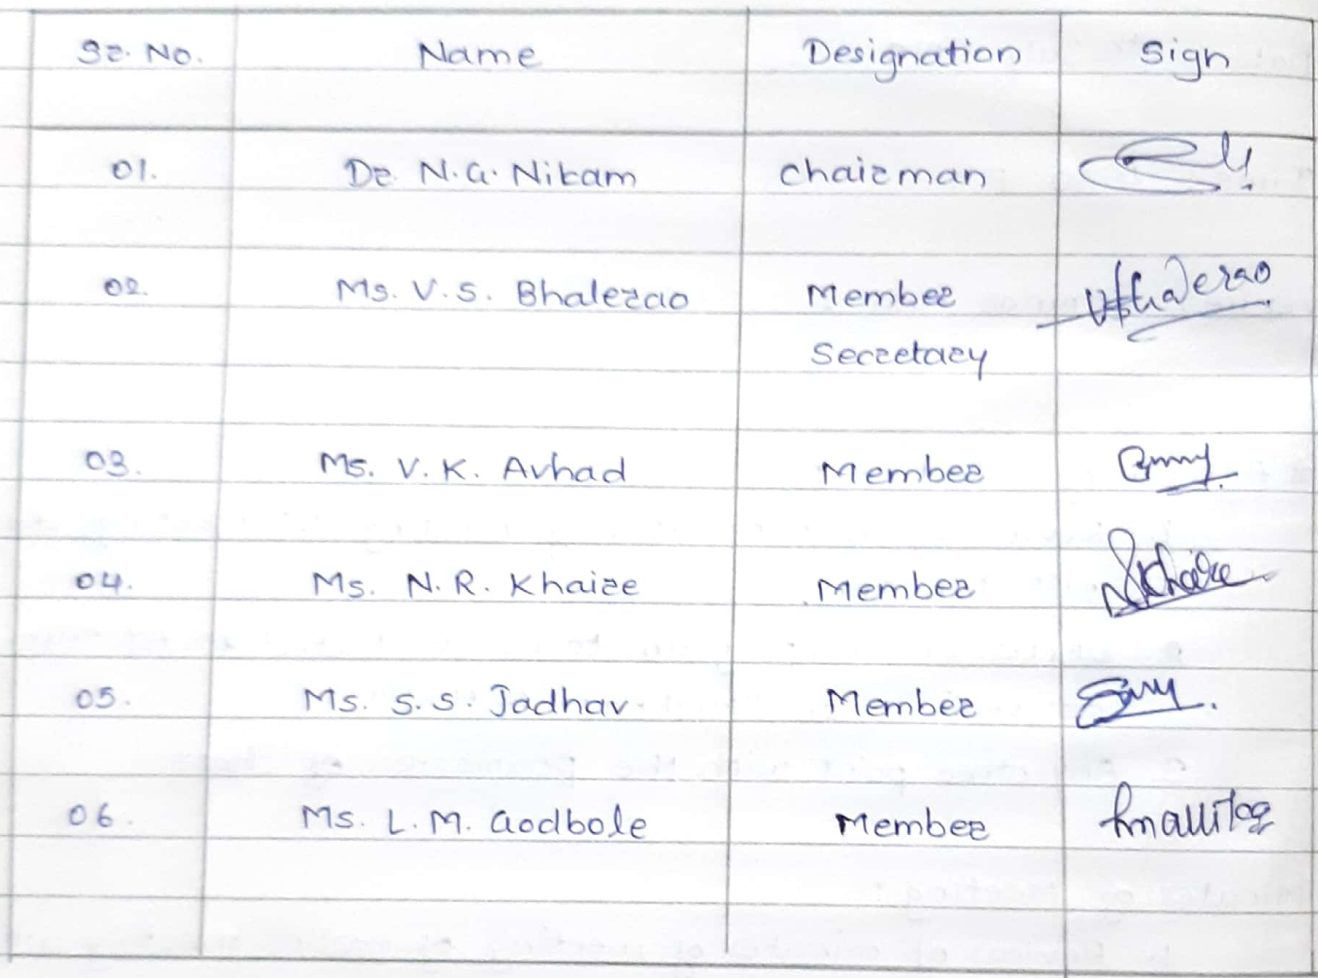 Sr. No. Name Designation Sign
01. Dr N.G. Nikam Chairman
02. Ms. V.S. Bhalerao Member VSBhalerao
Secretary
03. Ms. V.K. Avhad Member
04. Ms. N.R. Khaire Member NRKhaire
05. Ms. S.S. Jadhav. Member
06. Ms. L.M. Godbole Member